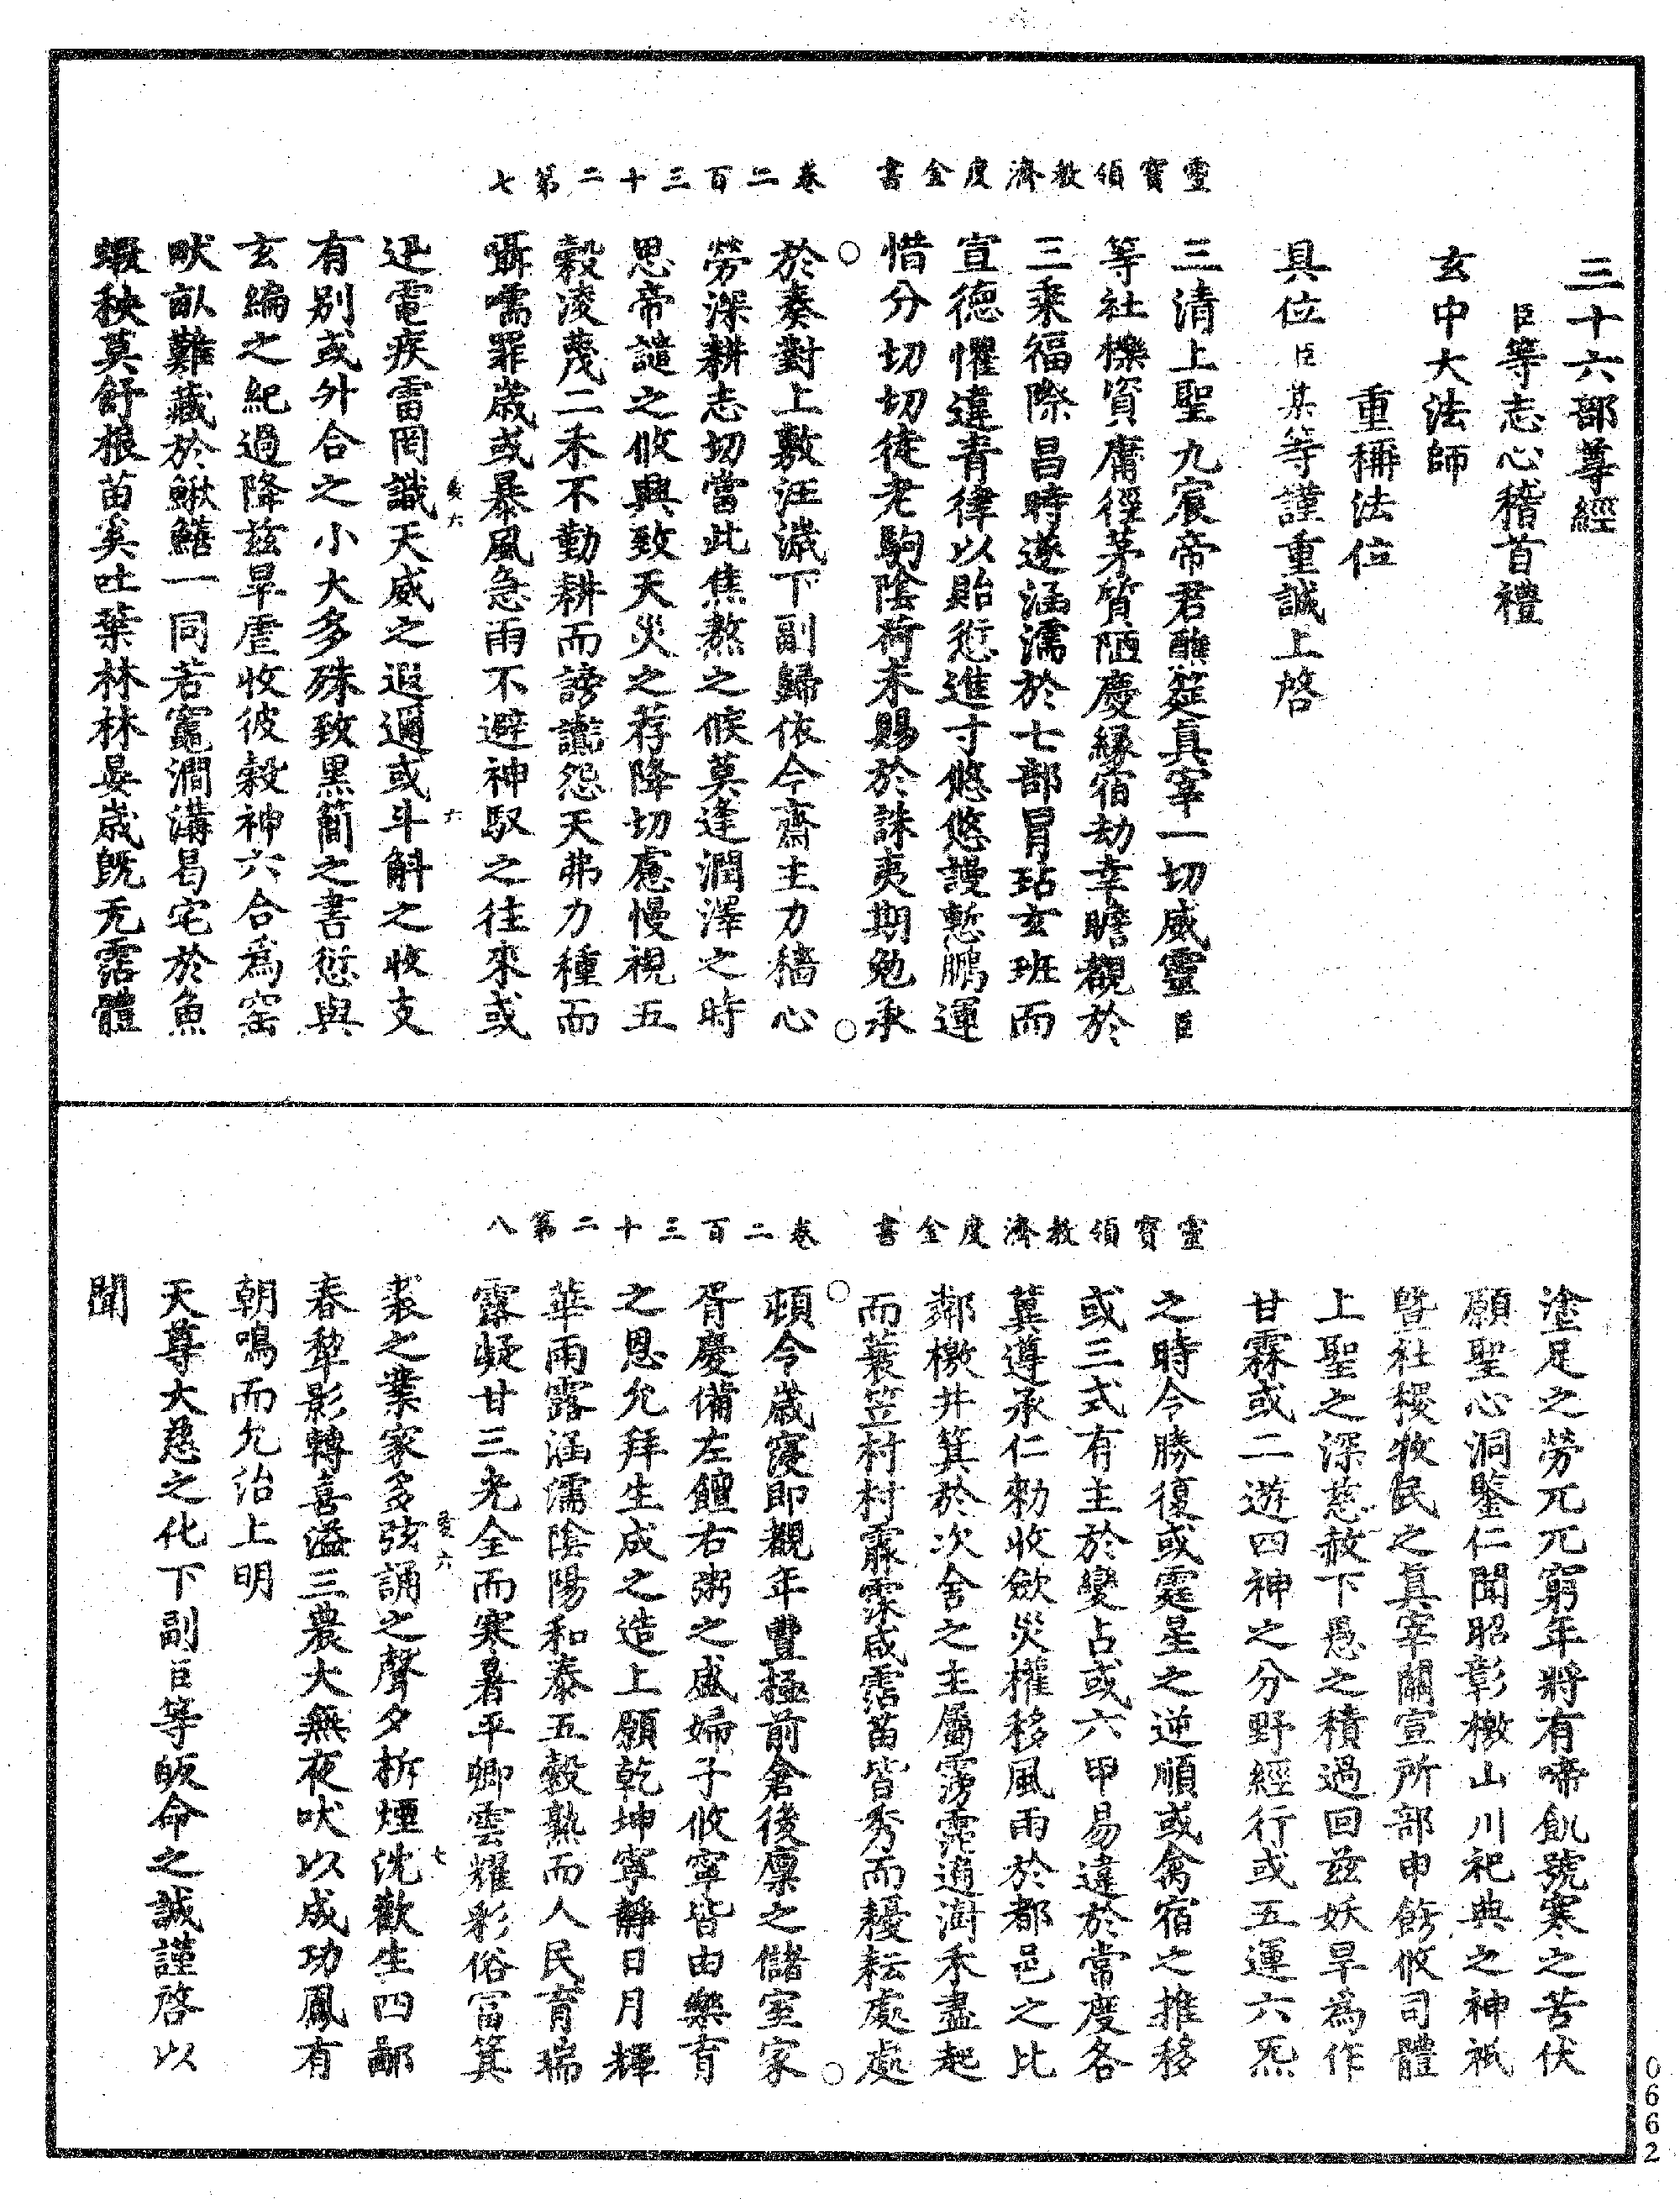 靈寶領教濟度金書　卷二百三十二第七
三十六部尊經
臣等志心稽首禮
玄中大法師
重稱法位
具位臣某等謹重誠上啓
三清上聖九宸帝君醮筵真宰一切威靈臣
等社櫟資庸徑茅質陋慶緣宿劫幸瞻覩於
三乘福際昌時遂涵濡於七部冒玷玄班而
宣德懼違青律以貽愆進寸悠悠謾慙鵬運
惜分切切徒老駒陰荷未賜於誅夷期勉承
於奏對上敷汪濊下副歸依今齋主力穡心
勞深耕志切當此焦熬之候莫逢潤澤之時
思帝譴之攸興致天災之荐降切慮慢視五
穀凌蔑二禾不勤耕而謗讟怨天弗力種而
囁嚅罪歲或暴風急雨不避神馭之往來或
迅電疾雷罔識天威之遐邇或斗斛之收支
有別或升合之小大多殊致黑簡之書愆與
玄編之紀過降兹旱虐收彼穀神六合爲窑
畎畝難藏於鰍鱔一同若竈澗溝曷宅於魚
蝦秧莫舒根苗奚吐葉林林晏歲既无霑體
夌六
六
靈寶領教濟度金書　卷二百三十二第八
塗足之勞兀兀窮年將有啼飢號寒之苦伏
願聖心洞鑒仁聞昭彰檄山川祀典之神祇
暨社稷牧民之真宰關宣所部申飭攸司體
上聖之深慈赦下愚之積過回兹妖旱為作
甘霖或二遊四神之分野經行或五運六炁
之時令勝復或霆星之逆順或禽宿之推移
或三式有主於變占或六甲易違於常度各
冀遵承仁勑收斂災權移風雨於都邑之比
鄰檄井箕於次舍之主屬霶霈適澍禾盡起
而蓑笠村村霢霂咸霑苗皆秀而耰耘處處
頓令歲寖即觀年豐極前倉後廪之儲室家
胥慶備左饘右粥之盛婦子攸寧皆由樂育
之恩允拜生成之造上願乾坤寧靜日月輝
華雨露涵濡陰陽和泰五穀熟而人民育瑞
露凝甘三光全而寒暑平卿雲耀彩俗冨箕
裘之業家多弦誦之聲夕柝煙沈歡生四鄙
春犂影轉喜溢三農犬無夜吠以成功鳳有
朝鳴而允治上明
天尊大慈之化下副臣等皈命之誠謹啓以
聞
夌六
七
0662